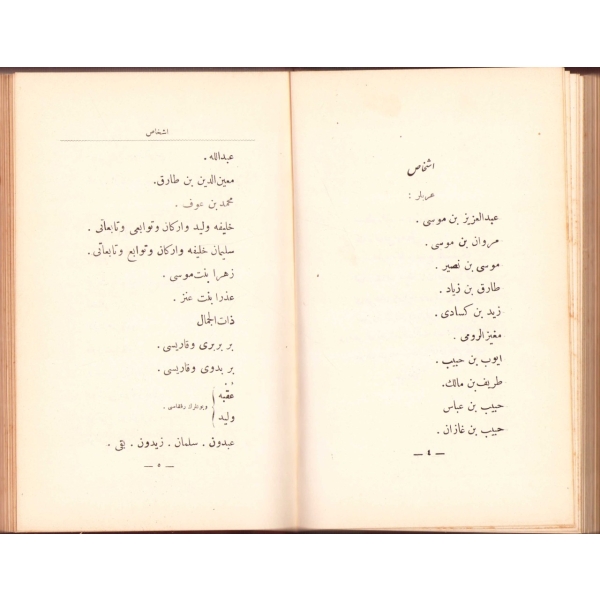 اشخاص
عربلر :
عبدالعزيز بن موسى .
مروان بن موسى .
موسى بن نصير .
طارق بن زياد .
زيد بن كسادى .
مغيزالرومى .
ايوب بن حبيب .
طريف بن مالك .
حبيب بن عباس
حبيب بن غازان .
— ٤ —
اشخاص
عبدالله .
معين‌الدين بن طارق .
محمد بن عوف .
خليفه وليد واركان وتوابعى وتابعانى .
سليمان خليفه واركان وتوابع وتابعانى .
زهرا بنت موسى .
عذرا بنت عنز .
ذات الجمال
بر بربرى وقاريسى .
بر بدوى وقاريسى .
عُقبه
وليد
عبدون . سلمان . زيدون . بقى .
— ٥ —